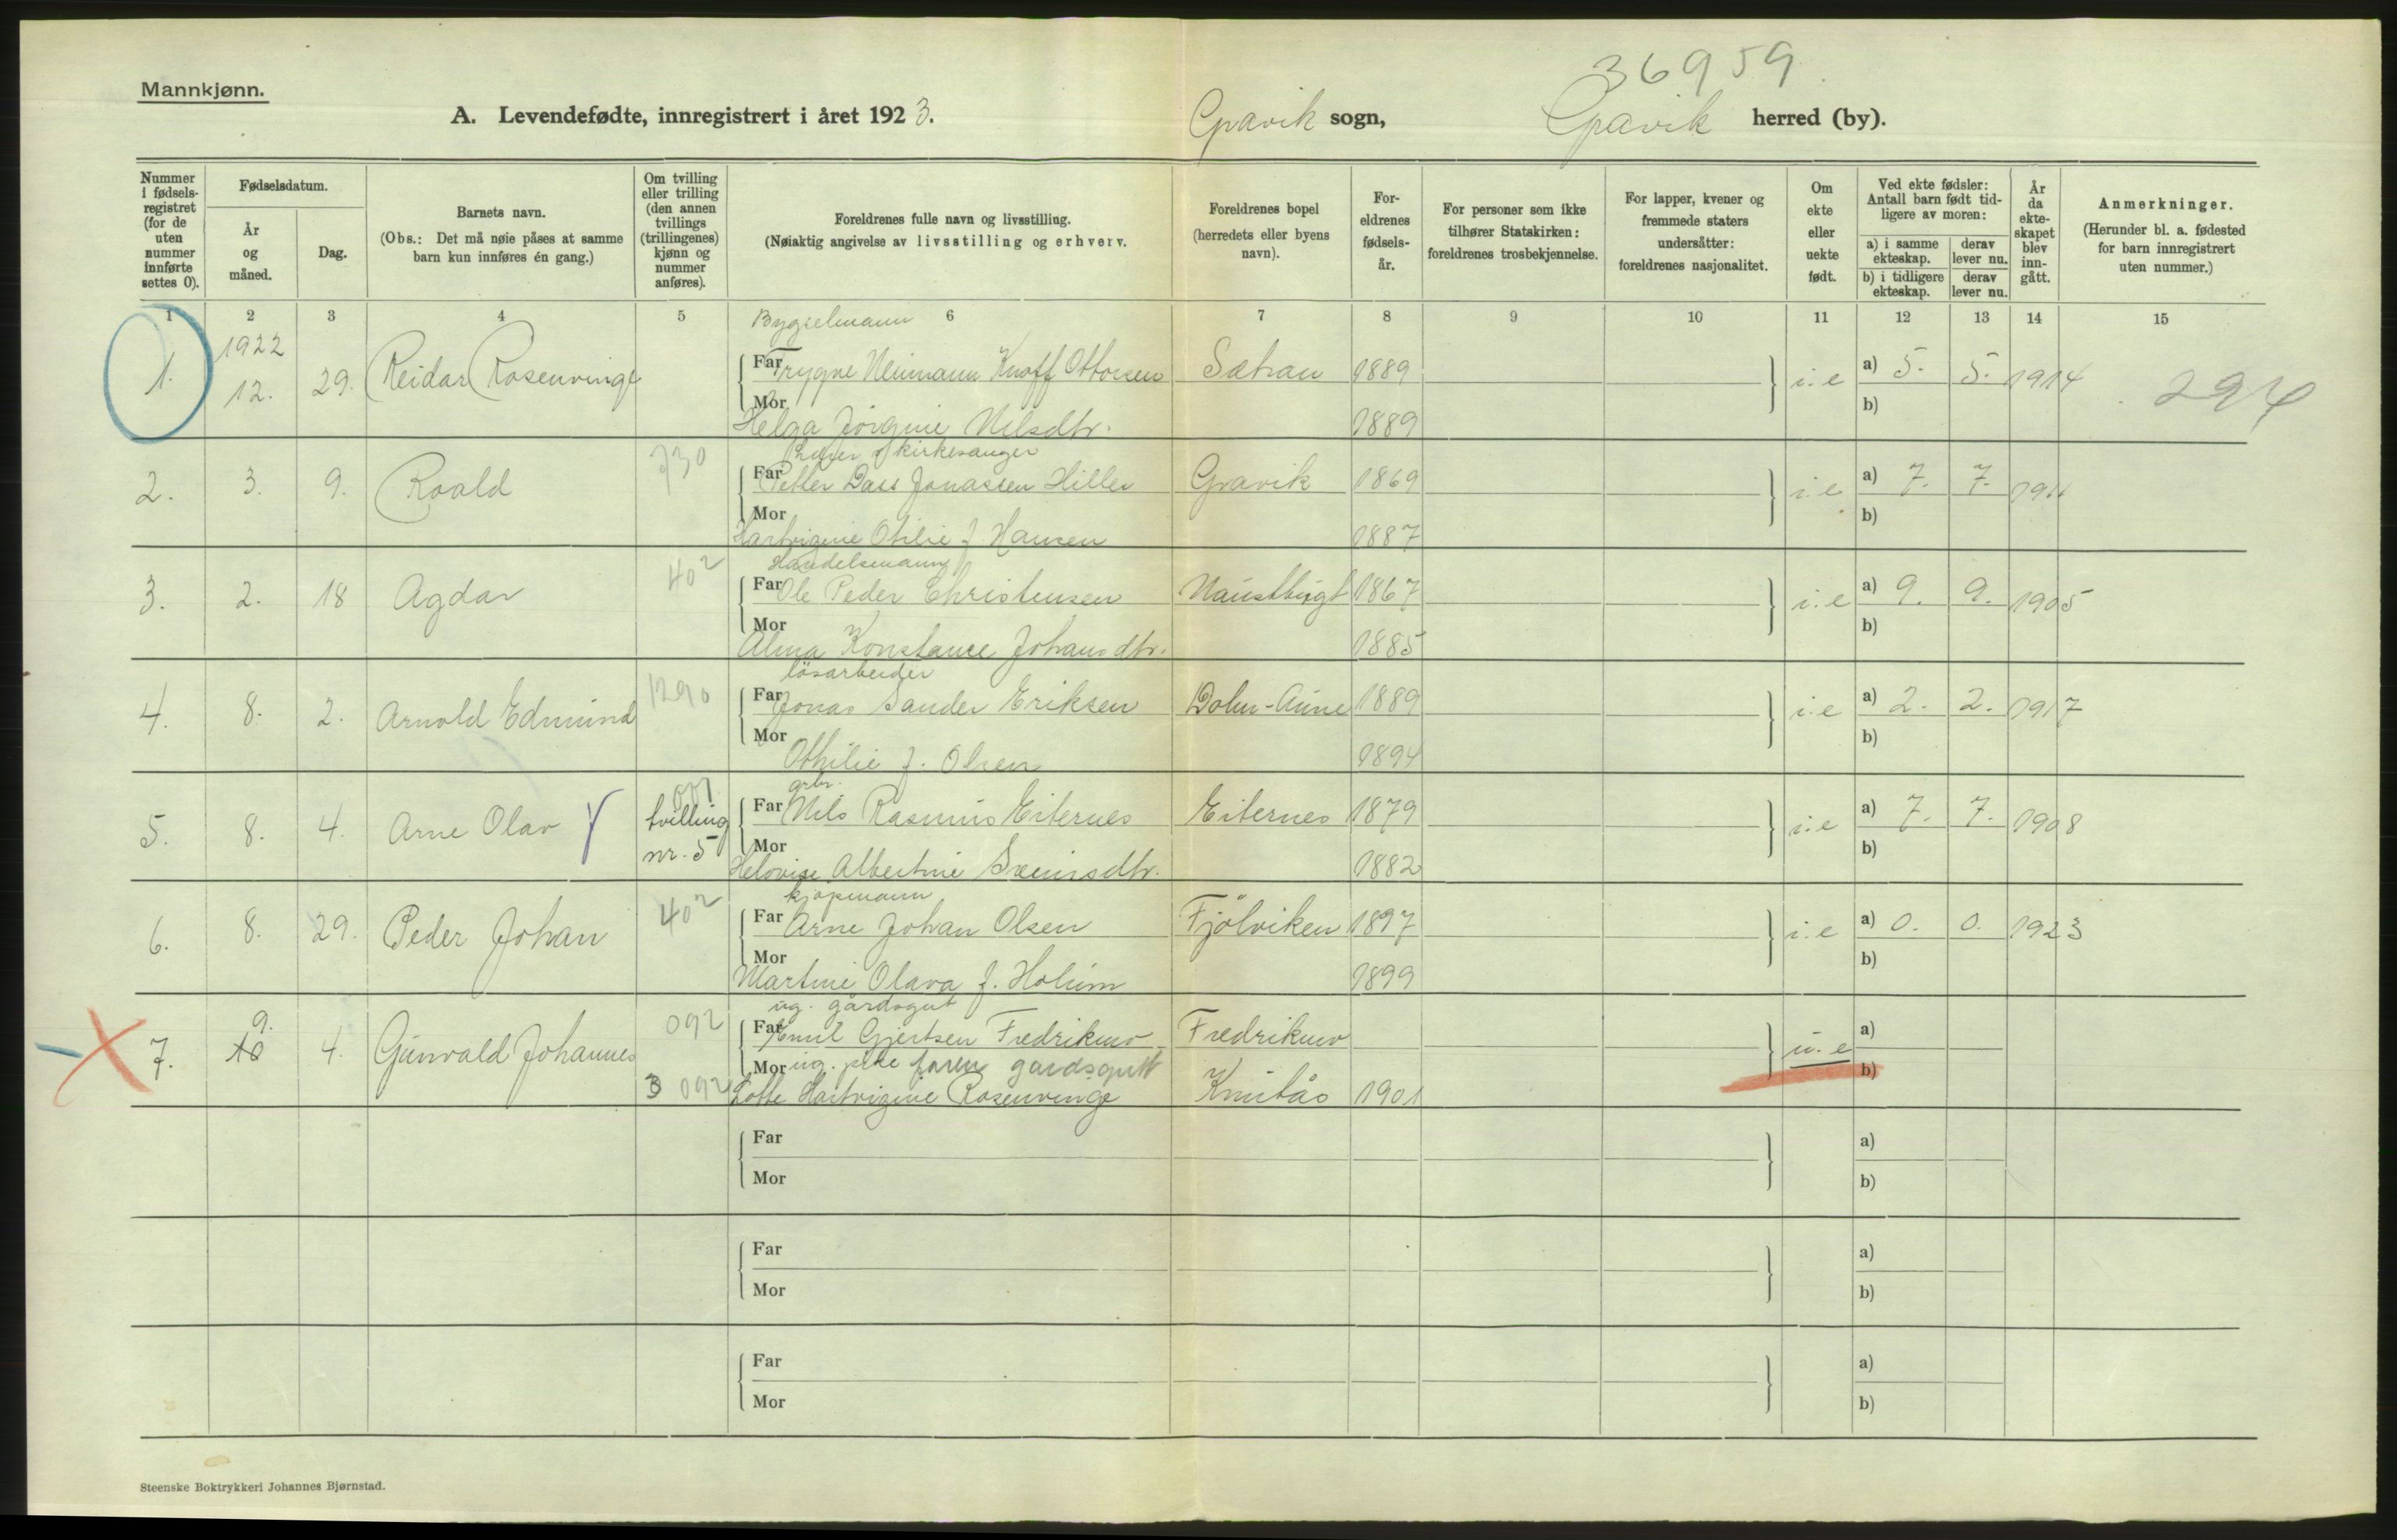 36959
Mannkjønn.
A. Levendefødte, innregistrert i året 1923. Gravik sogn, Gravik herred (by).
Nummer i fødsels-registret (for de uten nummer innførte settes 0).
Fødselsdatum.
År og måned.
Dag.
Barnets navn.
(Obs.: Det må nøie påses at samme barn kun innføres én gang.)
Om tvilling eller trilling (den annen tvillings (trillingenes) kjønn og nummer anføres).
Foreldrenes fulle navn og livsstilling.
(Nøiaktig angivelse av livsstilling og erhverv.
Foreldrenes bopel (herredets eller byens navn).
For-eldrenes fødsels-år.
For personer som ikke tilhører Statskirken: foreldrenes trosbekjennelse.
For lapper, kvener og fremmede staters undersåtter: foreldrenes nasjonalitet.
Om ekte eller uekte født.
Ved ekte fødsler: Antall barn født tid-ligere av moren:
a) i samme ekteskap. derav lever nu.
b) i tidligere ekteskap. derav lever nu.
År da ekte-skapet blev inn-gått.
Anmerkninger.
(Herunder bl. a. fødested for barn innregistrert uten nummer.)
1 2 3 4 5 6 7 8 9 10 11 12 13 14 15
Bygselmann
1. 1922 12. 29. Reidar Rosenvinge Far Trygve Neumann Knoff Ottosen Sætran 1889 i.e a) 5. 5. 1914 294
Mor Helga Jörgine Nilsdtr. 1889 b)
Lærer & kirkesanger
2. 3. 9. Roald 730 Far Petter Dass Jonassen Hiller Gravik 1869 i.e a) 7. 7. 1911
Mor Hartvigine Otilie f. Hansen 1887 b)
Handelsmann
3. 2. 18 Agdar 402 Far Ole Peder Christensen Naustbugt 1867 i.e a) 9. 9. 1905
Mor Alma Konstance Johansdtr. 1885 b)
lösarbeider
4. 8. 2. Arnold Edmund 1290 Far Jonas Sander Eriksen Dolm-Aune 1889 i.e a) 2. 2. 1917
Mor Othilie f. Olsen 1894 b)
grbr.
5. 8. 4. Arne Olav 001 tvilling nr. 5 Far Nils Rasmus Eiternes Eiternes 1879 i.e a) 7. 7. 1908
Mor Helovise Albertine 1882 b)
kjöpmann
6. 8. 29. Peder Johan 402 Far Arne Johan Olsen Fjölviken 1897 i.e a) 0. 0. 1923
Mor Martine Olava f. Holum 1899 b)
ug. gårdsgut
7. 9. 10 4. Gunvald Johannes 092 Far Emil Gjertsen Fredriksno Fredriksno u.e a)
Mor ug. pike faren gardsgutt b)
3 092 Lotte Hartvigine Rosenvinge Knutås 1901
Far a)
Mor b)
Far a)
Mor b)
Far a)
Mor b)
Steenske Boktrykkeri Johannes Bjørnstad.